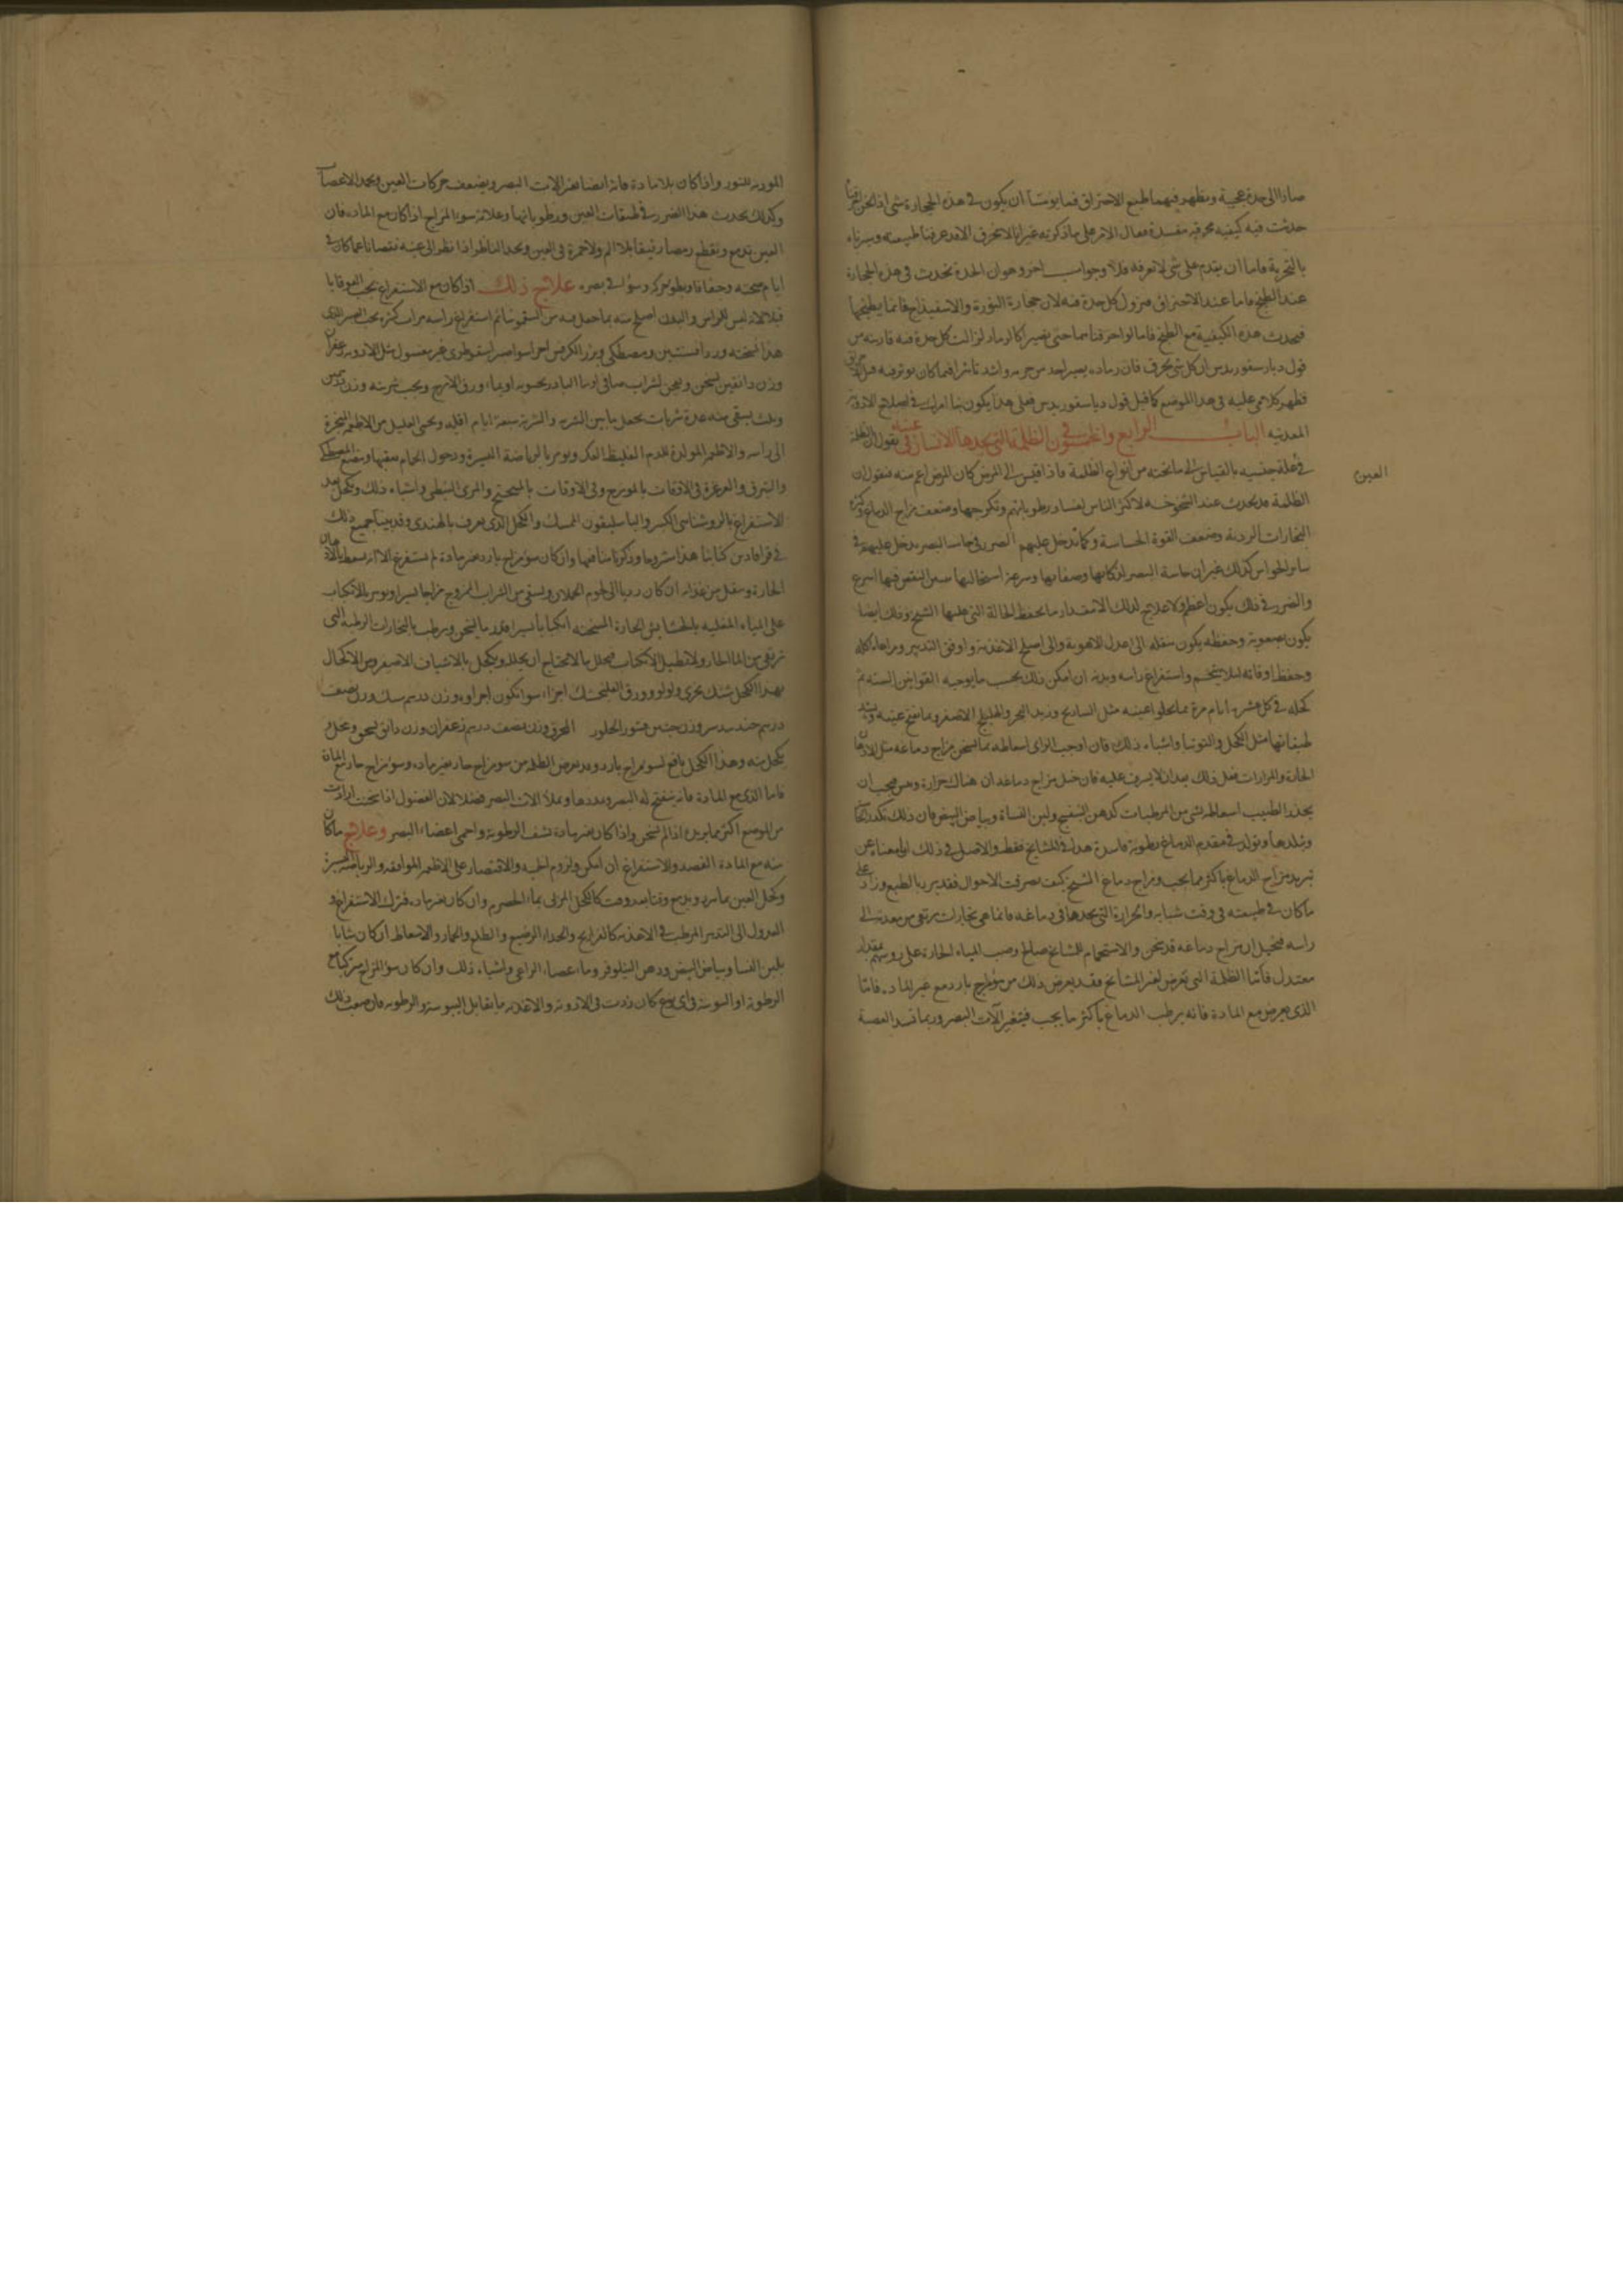 صارا الى حدة عجيبة ويظهر فيهما طبع الاحتراق فما يومننا ان يكون في هذه الحجارة شي اذا نحن احرقناه
حدثت فيه كيفية محرقة مفسدة فقال الامر على ما ذكرته غير انا لا نحرق الا قد عرفنا طبيعته وسبرناه
بالتجربة فاما ان يقدم على شي لا نعرفه فلا وجواب اخر وهو ان الحدة تحدث في هذه الحجارة
عند الطبخ فاما عند الاحتراق فيزول كل حدة فيه لان حجارة النورة والاسفيداج فانما يطبخها
فيحدث هذه الكيفية مع الطبخ فاما لو احرقناهما حتى يصيرا كالرماد لزالت كل حدة فيه
قول دياسقوريدس ان كل شي يحرق فان رماده يصير احد من جرمه واشد تاثيرا فما كان يوثر فيه قبل
فظهر كلامي عليه في هذا الموضع كما قيل قول دياسقوريدس فعلى هذا يكون بنا امرك في اصلاح الادوية
المعدنيه الباب الرابع والخمسون في الظلمة التي يجدها الانسان في عينيه نقول ان الظلمة
في علة جنسيه بالقياس الى ما تحته من انواع الظلمة فاذا قيس الى المرض كان المرض اعم منه فنقول ان
العين
الظلمة قد تحدث عند الشيخوخيه لاكثر الناس لفساد رطوباتهم وتكرجها وضعف مزاج الدماغ وكثرة
البخارات الرديئة وضعف القوة الحساسة وكما تدخل عليهم الضرر في حاسة البصر يدخل عليهم في
سائر الحواس كذلك غير ان حاسة البصر لذكائها وصفائها وسرعة استحالتها النقص فيها اسرع
والضرر في ذلك يكون اعظم ولا علاج لذلك الا مقدار ما يحفظ الحالة التي عليها الشيخ وذلك ايضا
يكون بصعوبة وحفظه يكون بنقله الى اعدل الاهوية والى اصلح الاغذية واوفق التدبير ومراعاة اكله
وحفظ اوقاته لئلا يتخم واستفراغ راسه وبدنه ان امكن ذلك بحسب ما يوجبه القوانين السته ثم
كحله في كل عشرة ايام مرة بما يجلوا عينيه مثل الساذج وزبد البحر والهليلج الاصفر وبما ينقي عينيه ويشد
طبقاتها مثل الكحل والتوتيا واشباه ذلك فان اوجب الراي اسعاطه بما يسخن مزاج دماغه مثل الادهان
الحارة والمرارات فعل ذلك بعد ان لا يسرف عليه فان خيل مزاج دماغه ان هناك حرارة ويبس فيجب ان
يحذر الطبيب اسعاطه بشي من المرطبات كدهن البنفسج ولبن النساء وبياض البيض فان ذلك تكدر الحاسة
ويبلدها ويولد في مقدم الدماغ رطوبة فاسدة هذا في المشايخ فقط والاصل في ذلك
تبريد مزاج الدماغ باكثر مما يجب ومزاج دماغ الشيخ كيف تصرفت الاحوال فقد برد بالطبع وزاد على
ما كان في طبيعته في وقت شبابه والحرارة التي يجدها في دماغه فانما هي بخارات ترتقي من معدته الى
راسه فيخيل ان مزاج دماغه قد سخن والاستحمام للمشايخ صالح وصب المياه الحارة على روسهم بمقدار
معتدل فاما الظلمة التي تعرض لغير المشايخ فقد يعرض ذلك من سؤ مزاج بارد مع غير الماده فاما
الذي يعرض مع المادة فانه يرطب الدماغ باكثر ما يجب فيتغير آلات البصر وربما تسد العصبة
الموديه للنور واذا كان بلا مادة فانه ايضا يغير الات البصر ويضعف حركات العين ويخدر الاعصاب
وكذلك يحدث هذا الضرر في طبقات العين ورطوباتها وعلامة سوء المزاج اذا كان مع الماده فان
العين تدمع وتقطع رمصا رقيقا بلا الم ولا حمرة في العين ويجد الناظر اذا نظر الى عينيه نقصانا عما كان في
ايام صحته وجفافا ورطوبة وسؤا في بصره علاج ذلك اذا كان مع الاستفراغ بحب القوقايا
هذا نسخته ورد افسنتين ومصطكى وبزر الكرفس اجزا سوا صبر اسقوطرى غير مغسول مثل الادوية وزعفران
وزن دانقين يسحن ويعجن بشراب صافي او بماء ورق الاترج ويحب شربته وزن درهمين
وثلث يسقى منه عدة شربات يجعل ما بين الشربه والشربة سبعة ايام اقله ويحمى العليل من الاطعمة المبخرة
الى راسه والاطعمة المولدة للدم الغليظ العكر ويومر بالرياضة اليسيرة ودخول الحمام بعقبها ومضغ المصطكى
والتعرق والغرغرة في الاوقات بالمويزج وفي الاوقات بالميبختج والمرى النبطي واشباه ذلك ويكحل بعد
الاستفراغ بالروشنايي الكبير والباسليقون الممسك والكحل الذي يعرف بالهندي وقد بينا جميع ذلك
في قرابادين كتابنا هذا شروحا وذكرنا منافعها وان كان سوء مزاج بارد بغير مادة لم يستفرغ الا انه يسعط بالادهان
الحارة وينقل من غذاه ان كان رديا الى لحوم الحملان ويسقى من الشراب الممزوج مزاجا يسيرا ويومر بالانكباب
على المياه المغليه بالحشايش الحارة المسخنه انكبابا يسيرا قدر ما يسخن ويرطب بالبخارات الرطبة التي
ترتقي من الماء الحار ولا تطيل الانكباب فيحلل ما لا يحتاج ان يحلل ويكحل بالاشياف الاصفر ومن الاكحال
بهذا الكحل
درهم جندبيدستر وزن حبتين قشور الحلزون المحرق وزن نصف درهم زعفران وزن دانق يسحق وينخل و
يكحل منه وهذا الكحل نافع لسوء مزاج بارد وقد يعرض الظلمة من سوء مزاج حار بغير ماده وسوء مزاج حار مع المادة
فاما الذي مع المادة فانه ينتفخ له البصر ويمددها ويملأ الات البصر فضلا لان الفضول اذا سخنت ارادت
من الموضع اكثر مما يريده اذا لم تسخن واذا كان بغير مادة نشف الرطوبة واحمى اعضاء البصر وعلاج ما كان
منه مع المادة الفصد والاستفراغ ان امكن ولزوم الحميه والاقتصار على الاطعمة الموافقه والرياضة اليسيرة
وكحل العين بما يبرد ويدمع وقتا بعد وقت كالكحل المربى بماء الحصرم وان كان بغير ماده فترك الاستفراغ و
العدول الى التدبير المرطب في الاغذية كالفراريج والجداء الرضيع والاسعاط ان كان شابا
بلبن النسا وبياض البيض ودهن النيلوفر وماء عصا الراعي واشباه ذلك وان كان سوء المزاج مركبا مع
الرطوبة او اليبوسة في اي نوع كان زدت في الادوية والاغذية ما يقابل اليبوسة والرطوبة فان صعب ذلك